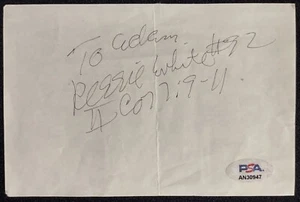 To Adam
Reggie White #92
II Cor 7:9-11
PSA
AN30947